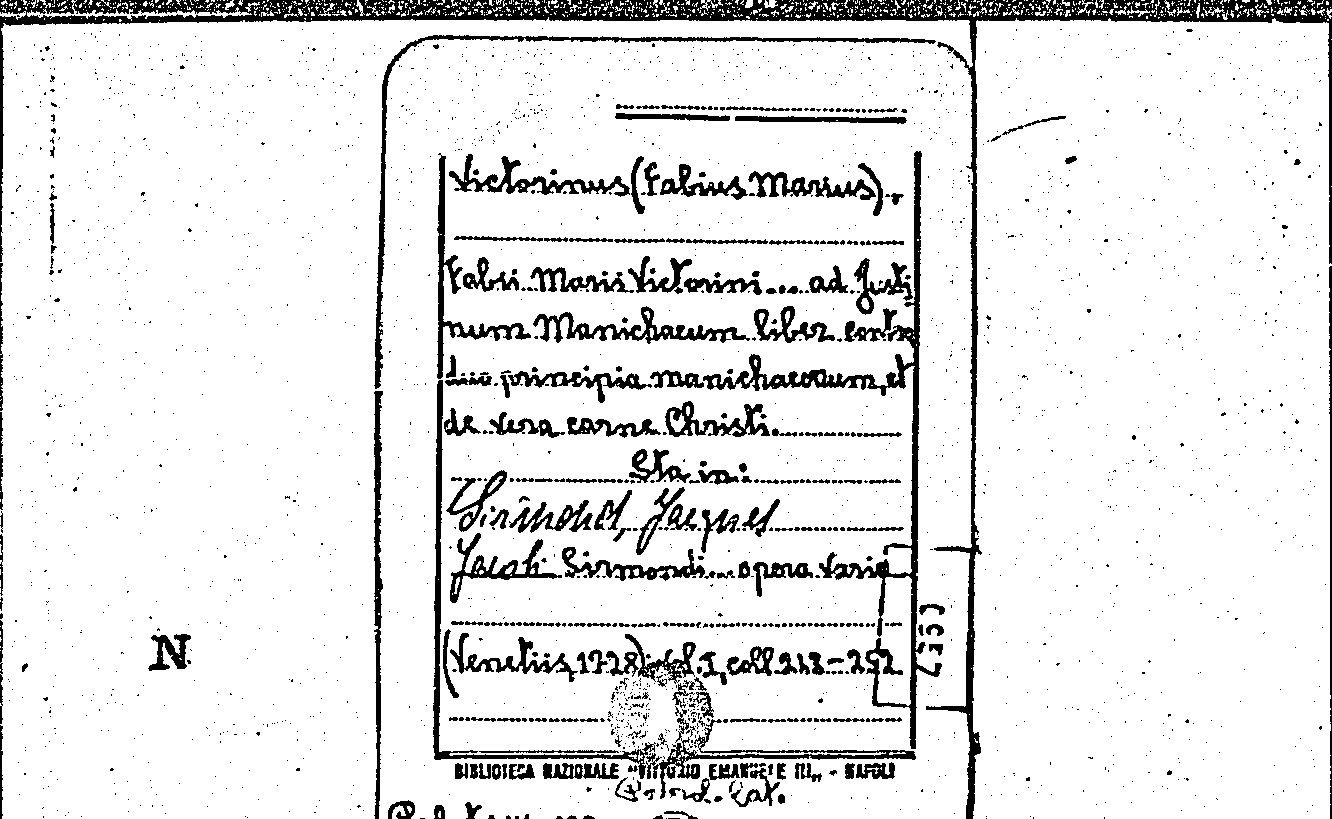 Victorinus (Fabius Marius).,
Fabii Marii Victorini... ad Justi
num Manichaeum liber contra
duo principia manichaeorum, et
de vera carne Christi.
Sta in:
Sirmond, Jacques
Jacobi Sirmondi... opera varia
(Venetiis, 1728) vol. I, coll. 218-252
BIBLIOTECA NAZIONALE "VITTORIO EMANUELE III" - NAPOLI
Cat.
N